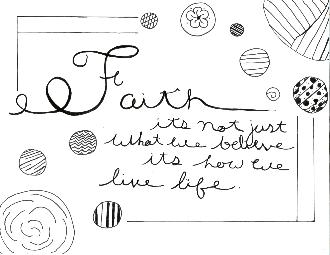 Faith
its not just
what we believe
its how we
live life.